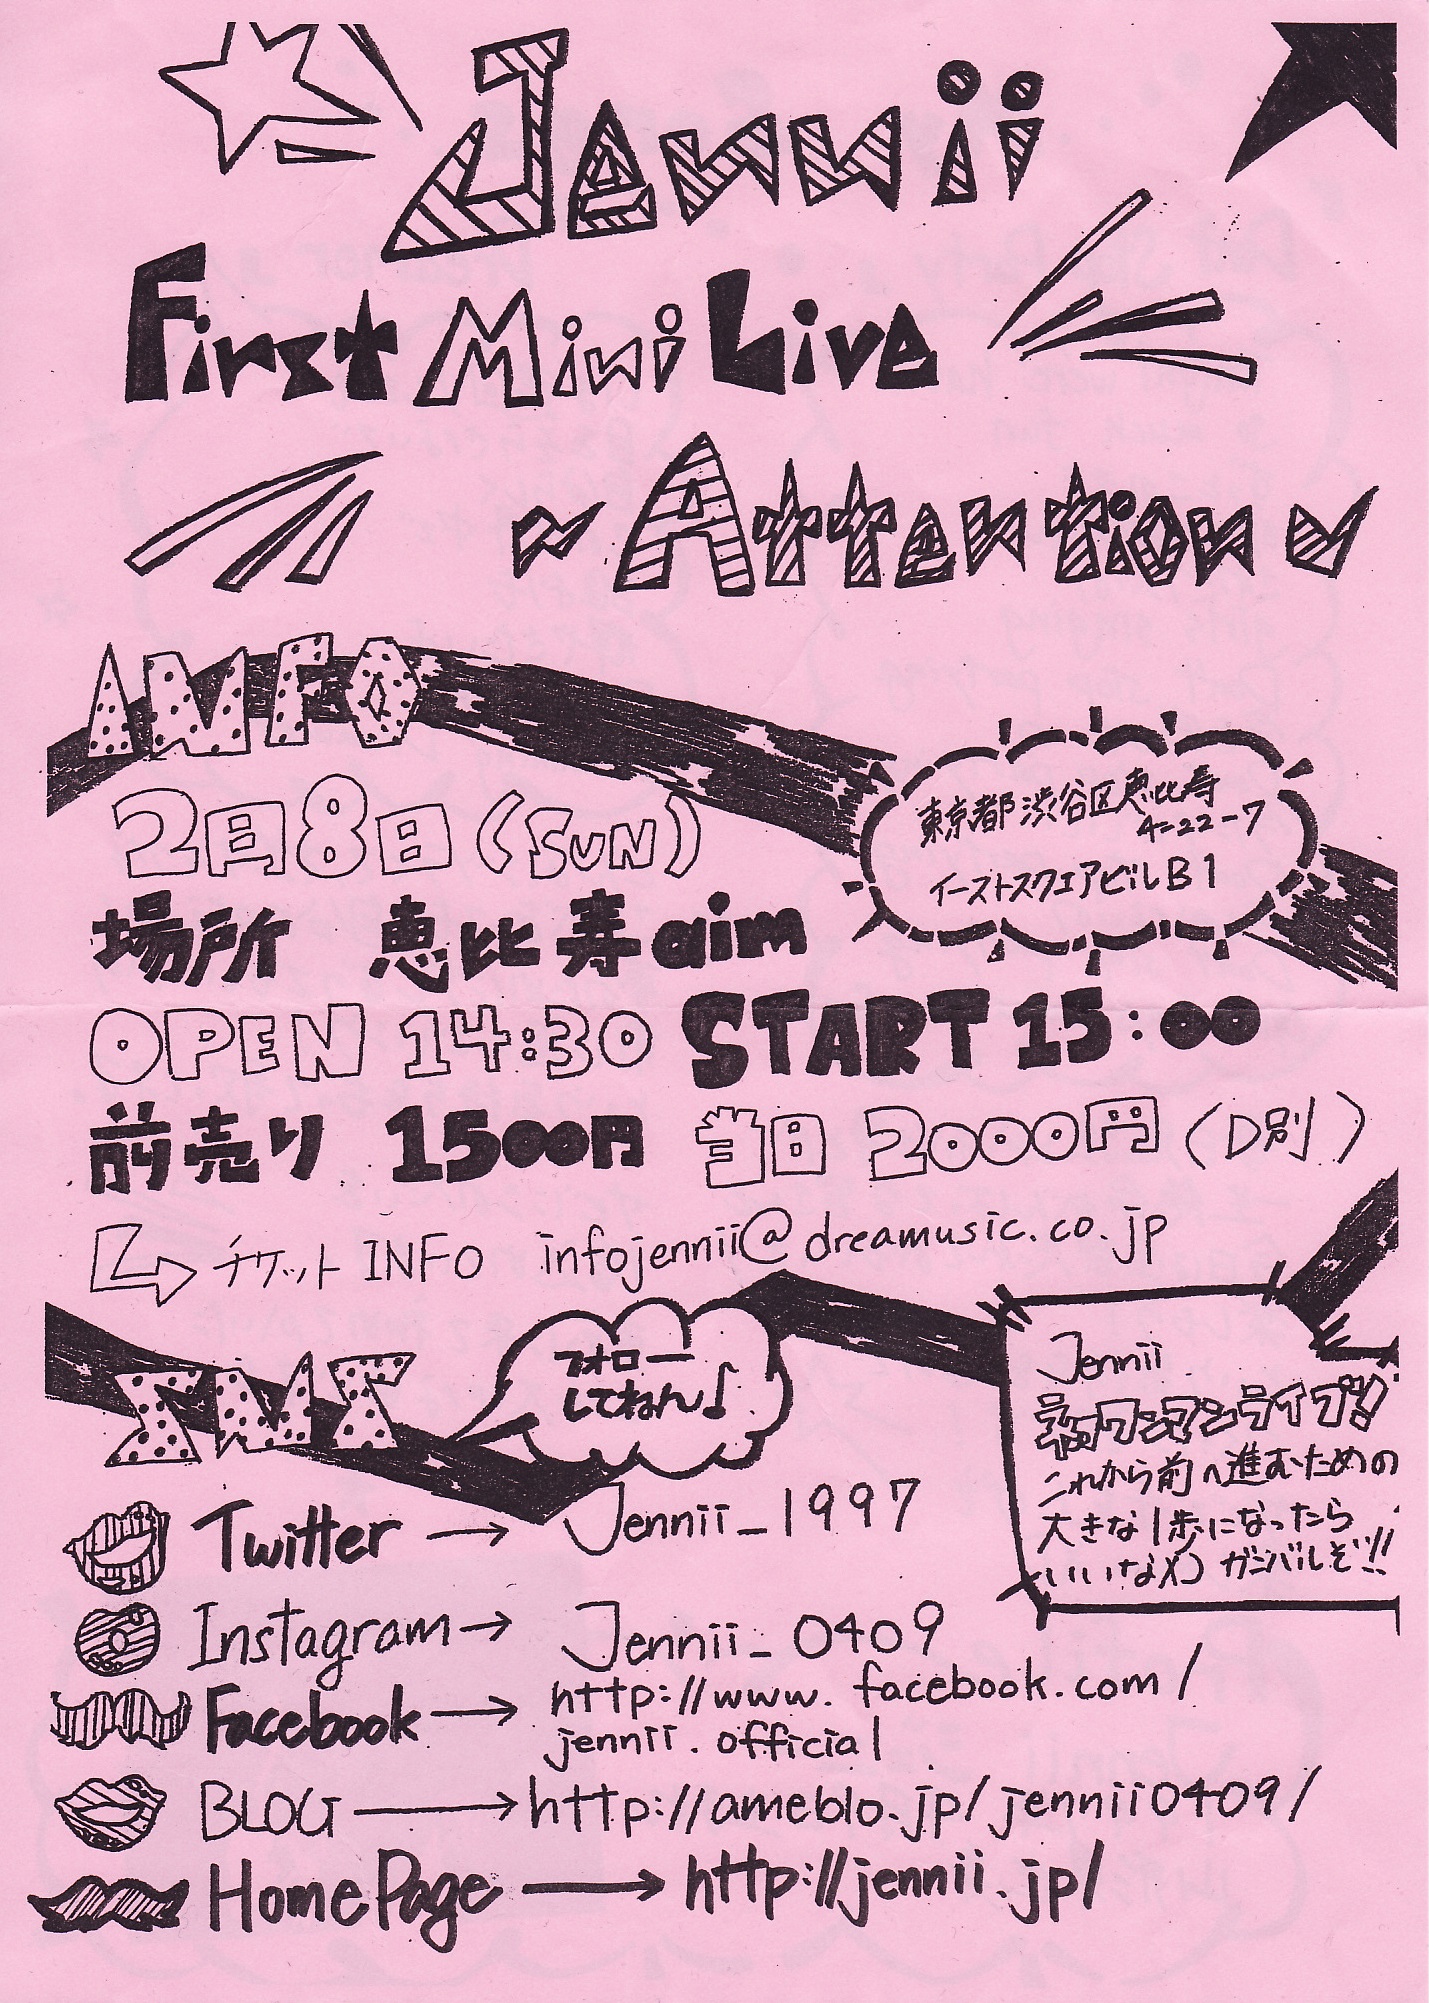 Jennii
First Mini Live
~Attention~
INFO
2月8日(SUN)
東京都渋谷区恵比寿
4-22-7
イーストスクエアビルB1
場所 恵比寿aim
OPEN 14:30 START 15:00
前売り 1500円 当日 2000円(D別)
チケットINFO infojennii@dreamusic.co.jp
SNS
フォロー
してねん♪
Jennii
初ワンマンライブ!!
これから前へ進むための
大きな1歩になったら
いいな ガンバルぞ!!
Twitter → Jennii_1997
Instagram → Jennii_0409
Facebook → http://www.facebook.com/
jennii.official
BLOG → http://ameblo.jp/jennii0409/
HomePage → http://jennii.jp/